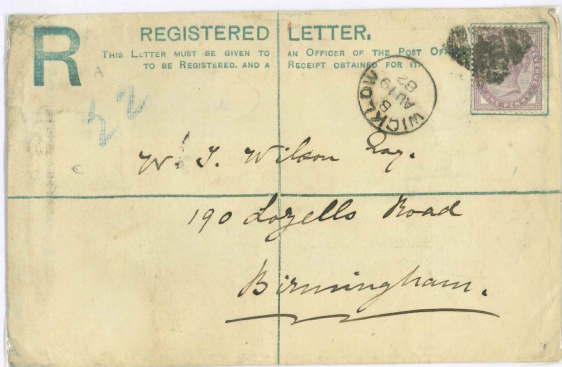 R REGISTERED LETTER.
THIS LETTER MUST BE GIVEN TO AN OFFICER OF THE POST
TO BE REGISTERED, AND A RECEIPT OBTAINED FOR IT
WICKLOW
B
AU 19
82
ONE PENNY
22
W. T. Wilson Esq.
190 Lozells Road
Birmingham.